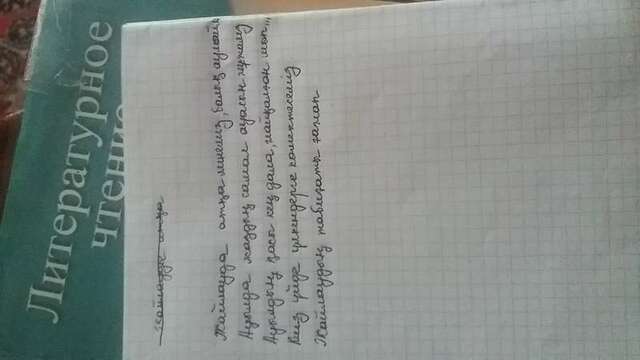 Литературное
чтение
Жайлауды атқа
Жайлауда атқа мінеміз, балық аулаймы
Ауылда жаздың самал ауасын жұтамыз
Ауылдың қасы кең дала, жайқалған шөп...
Киіз үйде үлкендерге комектеселиз
Жайлаудың табиғаты ғажап